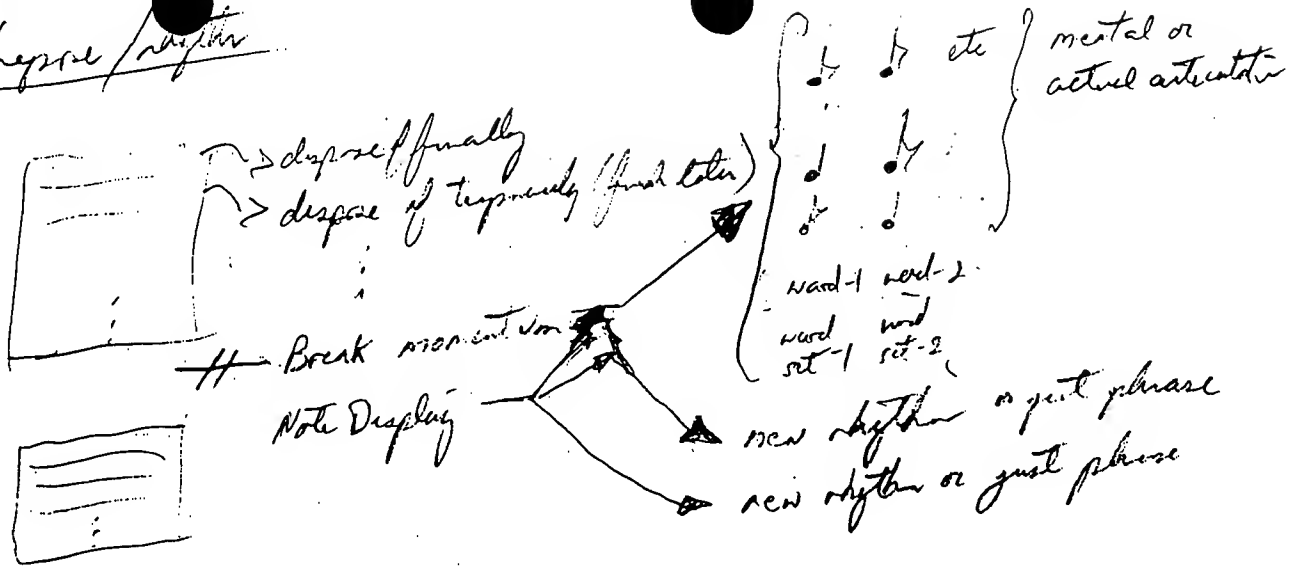 / rhythm
etc
mental or
actual articulation
dispose of finally
dispose of temporarily (finish later)
word-1 word-2
word word
set-1 set-2
Break momentum
Note Display
new rhythm or just phrase
new rhythm or just phrase